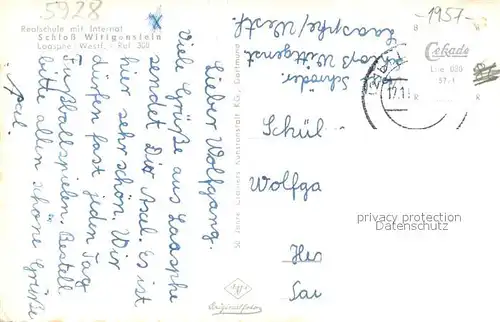 5928
-1957-
Realschule mit Internat
Schloß Wittgenstein
Laasphe/Westf. / Ruf 308
Lieber Wolfgang.
Viele Grüße aus Laasphe
sendet Dir Axel. Es ist
hier sehr schön. Wir
dürfen fast jeden Tag
Fußballspielen. Bestell
bitte allen schöne Grüße
Axel.
50 Jahre Cramers Kunstanstalt KG., Dortmund
Schröder
Schloß Wittgenst
Laasphe/Westf.
Cekade
17.1
Schül
Wolfga
privacy protection
Datenschutz
Her
Sar
Originalfoto